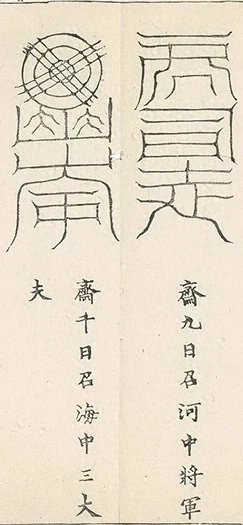 齋九日召河中將軍
齋千日召海中三大
夫